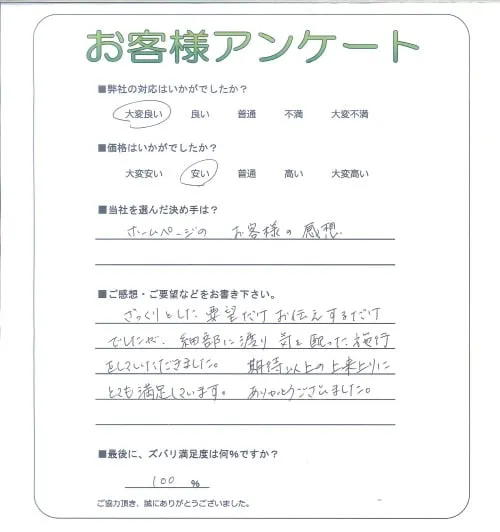 お客様アンケート
■弊社の対応はいかがでしたか？
大変良い 良い 普通 不満 大変不満
■価格はいかがでしたか？
大変安い 安い 普通 高い 大変高い
■当社を選んだ決め手は？
ホームページの お客様の感想.
■ご感想・ご要望などをお書き下さい。
ざっくりとした要望だけお伝えするだけ
でしたが、細部に渡り気を配った施行
をしていただきました。 期待以上の上来上りに
とても満足しています。 ありがとうございました。
■最後に、ズバリ満足度は何%ですか？
100 %
ご協力頂き、誠にありがとうございました。